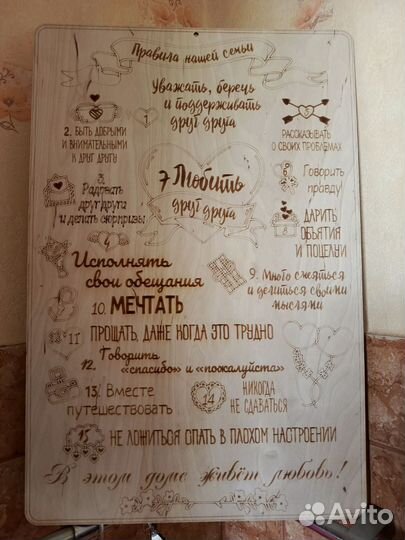 Правила нашей семьи
Уважать, беречь
и поддерживать
друг друга
1
2. БЫТЬ ДОБРЫМИ
И ВНИМАТЕЛЬНЫМИ
К ДРУГ ДРУГУ
5
РАССКАЗЫВАТЬ
О СВОИХ ПРОБЛЕМАХ
3.
Радовать
друг друга
и делать сюрпризы
7 Любить
друг друга
6
Говорить
правду!
8
ДАРИТЬ
ОБЪЯТИЯ
И ПОЦЕЛУИ
4
Исполнять
свои обещания
9. Много смеяться
и делиться своими
мыслями
10. МЕЧТАТЬ
11 ПРОЩАТЬ, ДАЖЕ КОГДА ЭТО ТРУДНО
12. Говорить
«спасибо» и «пожалуйста»
13. Вместе
путешествовать
14 НИКОГДА
НЕ СДАВАТЬСЯ
15 НЕ ЛОЖИТЬСЯ СПАТЬ В ПЛОХОМ НАСТРОЕНИИ
В этом доме живёт любовь!
Avito